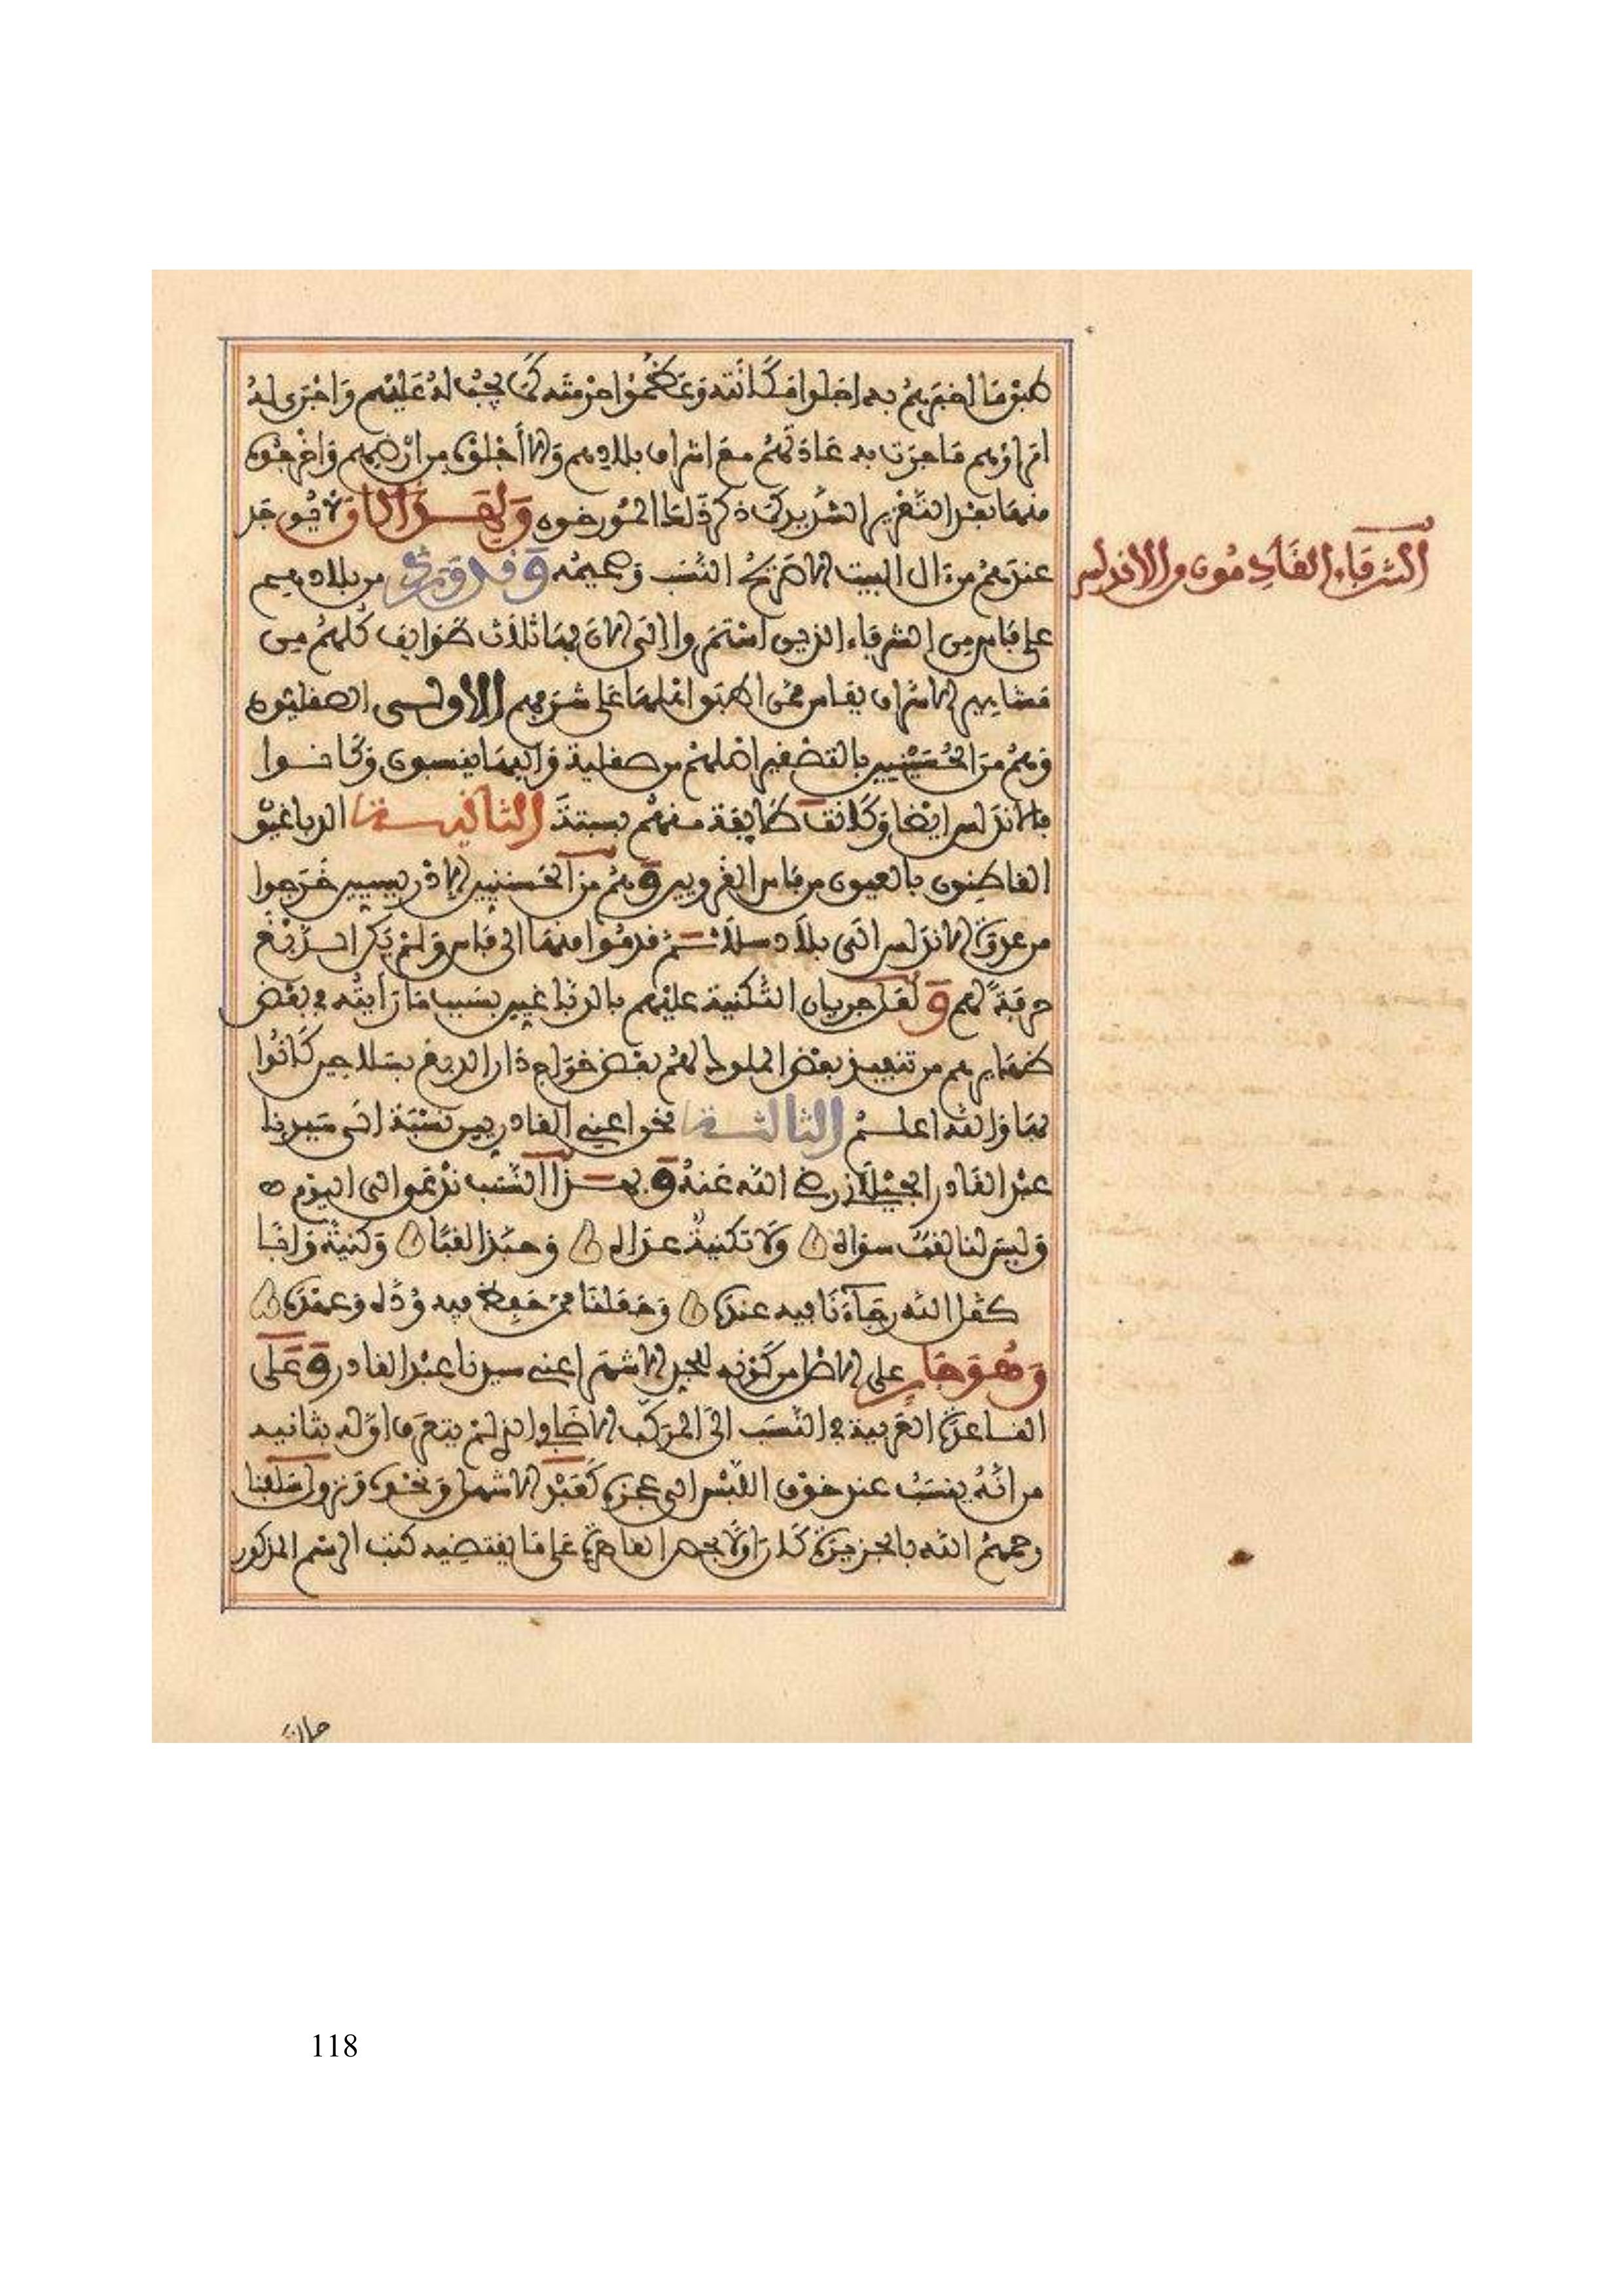 طبق ما اخبرهم به اجلوا مكانته وعظموا حرمته كما يجب له عليهم واجرى له
امراؤهم ما جرت به عادتهم مع اشراف بلادهم والا اجلوه من ارضهم واخرجوه
منها بعد التغريم الشديد كما ذكر ذلك المؤرخون ولهذا لا يوجد
عندهم من ءال البيت الا صريح النسب وصميمه وقد ورد من بلادهم
على فاس من الشرفاء الذين استمروا الى الان بها ثلاث طوايف كلهم من
مشاهير الاشراف بفاس ممن اطبق اهلها على شرفهم الاولى الصقليون
وهم من الحسينيين بالتصغير اصلهم من صقلية واليها ينسبون وكانوا
بالاندلس ايضا وكانت طايفة منهم بسبتة الثانية الدباغيون
القاطنون بالعيون من فاس القرويين وهم من الحسنيين الادريسيين خرجوا
من عدوة الاندلس الى بلاد سلا ثم قدموا منها الى فاس ولم يكن الدبغ
حرفة لهم ولعل جريان التكنية عليهم بالدباغيين بسبب ما رايته في بعض
ظهايرهم من تنفيذ بعض الملوك لهم بعض خراج دار الدبغ بسلا حين كانوا
بها والله اعلم الثالثة نحن اعني القادريين نسبة الى سيدنا
عبد القادر الجيلاني رضي الله عنه وبهذا النسب ندعو الى اليوم
وليس لنا لقب سواه ولا تكنية عداه وحبذا لقبا وكنية وافيا
كفل الله رجاءنا فيه عنده وجعلنا ممن حفظ فيه وده وعهده
وهو جار على الاصل من كونه للجد الاشهر اعني سيدنا عبد القادر وعلى
القاعدة العربية في النسب الى المركب الاضافي الذي لم يتعرف اوله بثانيه
من انه ينسب عند خوف اللبس الى عجزه كعبد الاشهل ونحوه ونزول سلفنا
رحمهم الله بالجزيرة كان اولا بحصن على ما يقتضيه كتب الرسم المذكور
الشرفاء القادمون من الاندلس
118